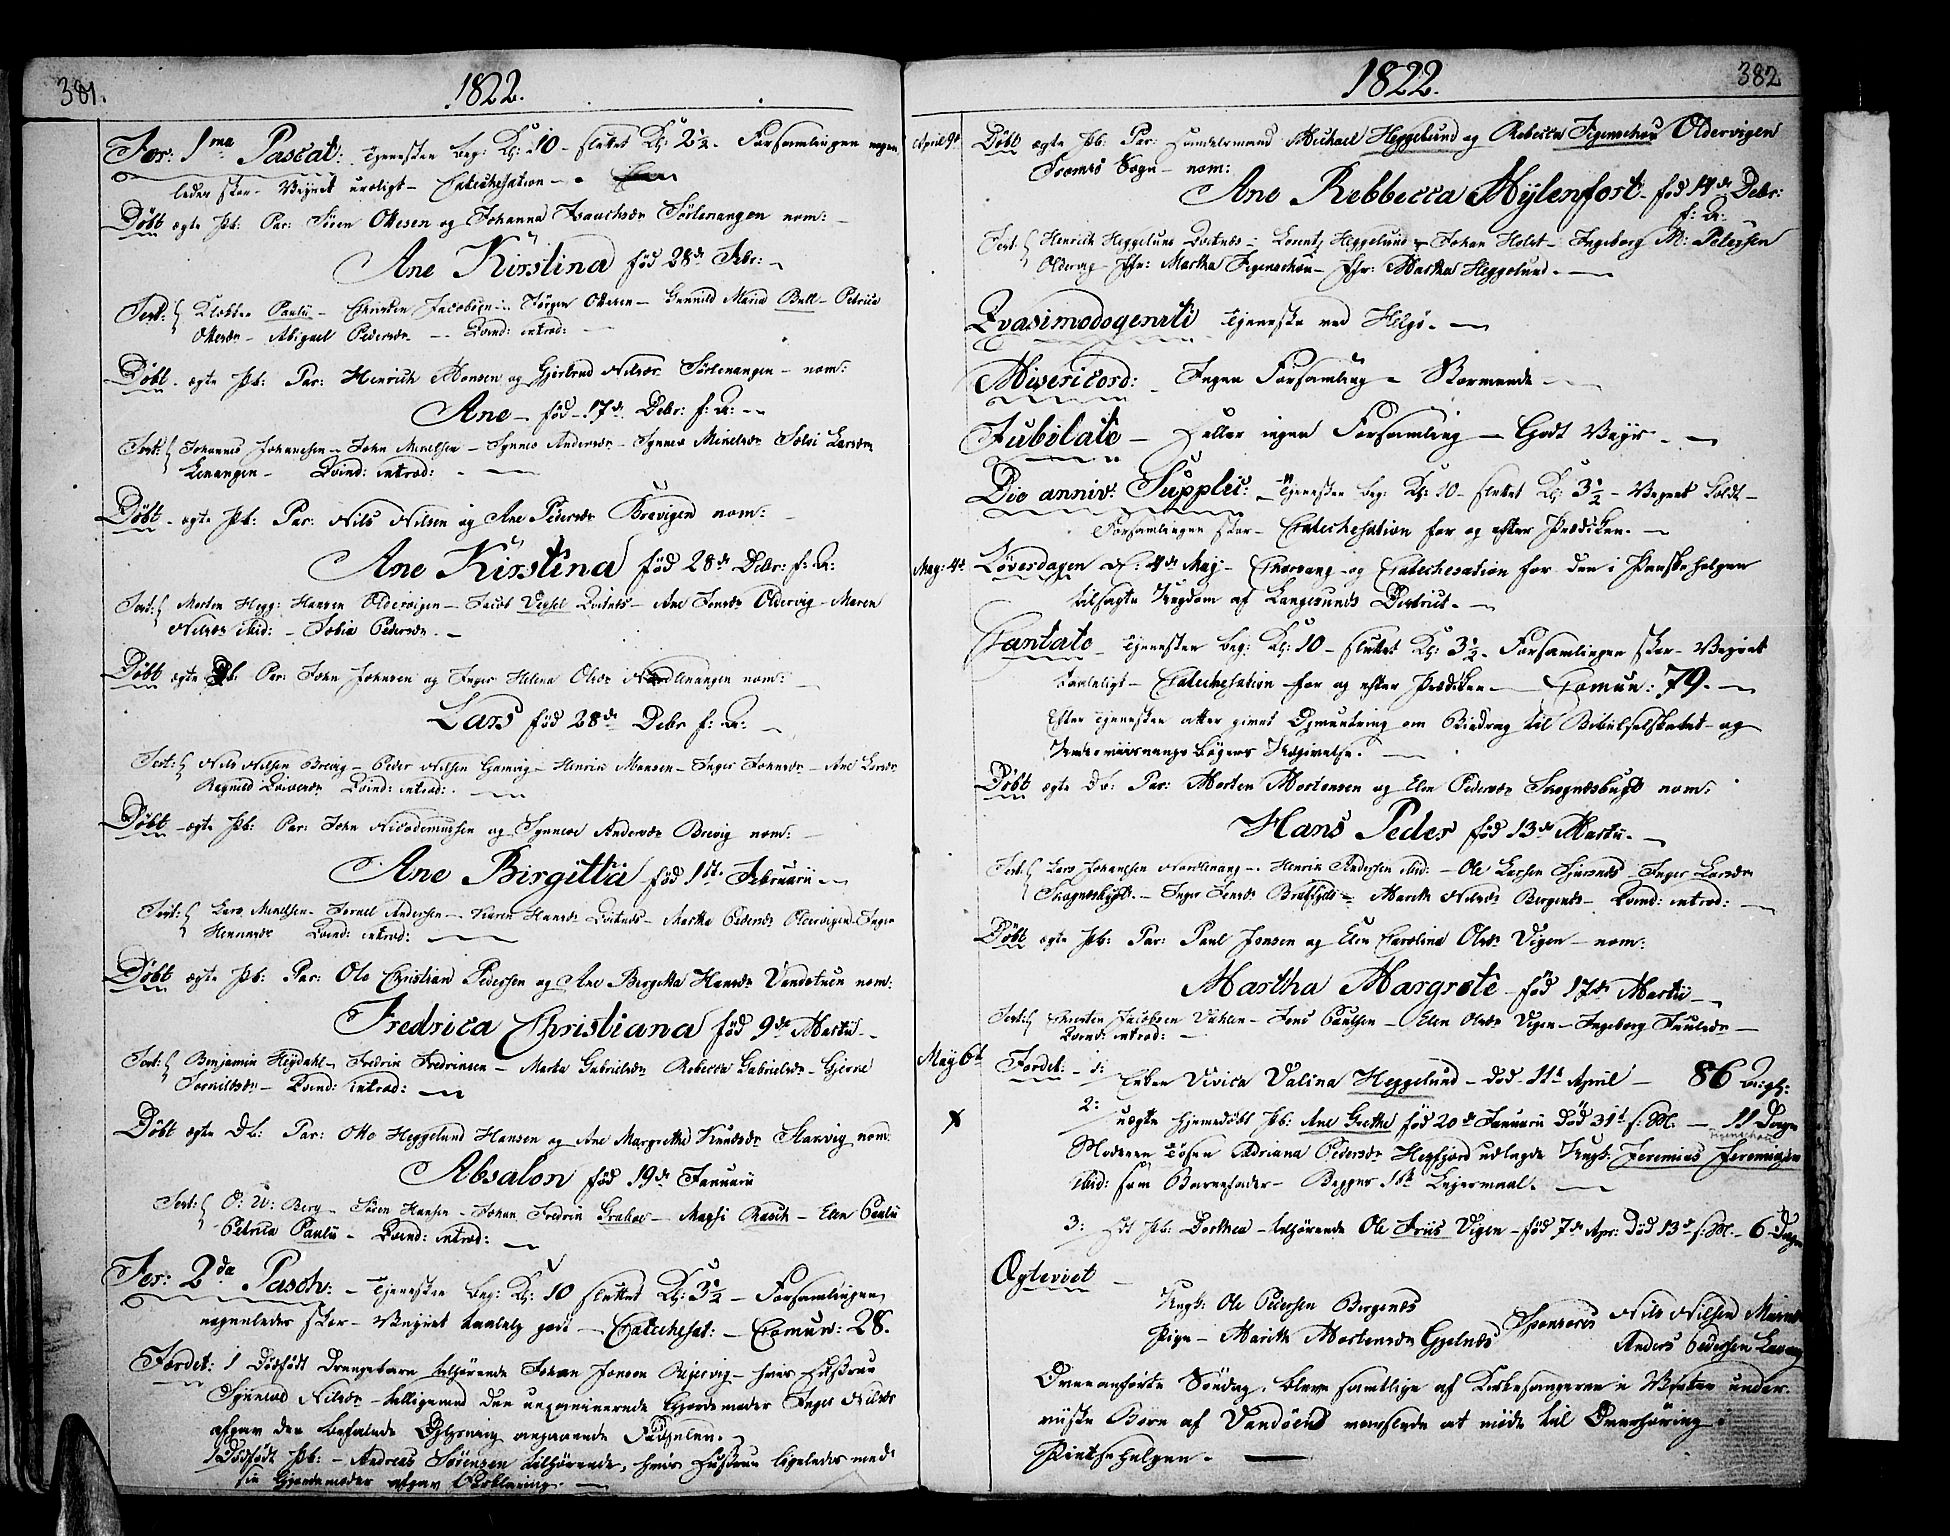 381.
1822.
Fer: 1ma Pascat: Tjenesten beg: Kl: 10 - sluttet Kl: 2½ - Forsamlingen nogen
ledes stor - Vejret uroligt - Catechesation -
Døbt ægte Pb: Par: Sören Ottesen og Johanna Isaachsdr Sörlenangen nom:
Ane Kirstina fød 28de Febr:
Test: Klokker Pauli - Christen Jacobsen - Jörgen Ottesen - Gunnild Maria Bull - Petrica
Ottesdr - Abigael Pedersdr - Qvind: introd:
Døbt - ægte Pb: Par: Henrich Monsen og Gjertrud Nilsdr Sörlenangen - nom:
Ane - fød - 17de Decbr: f: A:
Test: Johannes Johannesen - John Mineltsen - Synneve Andersdr - Synneve Mineltsdr Solvi Larsdr
Lenangen - Qvind: introd:
Døbt - ægte Pb: Par: Nils Nilsen og Ane Pedersdr Brevigen nom:
Ane Kirstina fød 28de Decbr: f: A:
Test: Morten Hegg: Hansen Oldervigen - Jacob Qvitnes - Ane Jensdr Oldervig - Maren
Nilsdr ibid: - Sobia Pedersdr.
Døbt ægte Db: Par: John Johnsen og Inger Helena Olsdr Nordlenangen nom:
Lars fød 28de Decbr f: A:
Test: Nils Nilsen Brevig - Peder Nilsen Hamvig - Henrik Monsen - Inger Johnsdr - Ane Larsdr
Ragnild Qvind: introd:
Døbt - ægte Pb: Par: John Nicodemussen og Synneve Andersdr Brevig nom:
Ane Birgitta fød 1ste Februarii
Test: Lars Mineltsen - Jernel Andersen - Karen Hansdr Qvitnes - Martha Pedersdr Oldervigen - Inger
Hennesdr Qvind: introd:
Døbt ægte Pb: Par: Ole Christian Pedersen og Ane Bergitta Hansdr Vandstuen nom:
Fredrica Christiana fød 9de Martii
Test: Benjamin Heydahl - Fredrik Fredriksen - Marta Gabrielsdr Rebecca Gabrielsdr - Gjerne
Qvind: introd:
Døbt ægte Db: Par: Otto Heggelund Hansen og Ane Margretha Knudsdr Skarvig nom:
Absalon fød 19de Januarii
Test: O: W: Berg - Sören Hansen - Johan Fredrik - Magsi Rasch - Elen Pauli
Petrica Pauli - Qvind: introd:
Fer: 2da Pasch: - Tjenesten beg: Kl: 10 sluttet Kl: 3½ - Forsamlingen
nogenledes stor - Vejret taalelig godt - Catechesat: - Comun: 28.
Jordet: 1 Dødfødt Drengebarn tilhørende Johan Jonsen Rejervig - hvis Hustrue
Synneve Nilsdr - tilligemed den uexaminerede Gjordemoder Inger Nilsdr
afgav den befalede angaaende Fødselen.
1 Dødfødt Pb: - Andreas Sörensen tilhørende, hvis Hustrue ligeledes med
sin Gjordemoder afgav Erklæring -
1822.
382
April 9d Døbt ægte Pb: Par: Handelsmand Michael Heggelund og Rebecca Figenschau Oldervigen
Tromsö Sogn - nom:
Ane Rebbecca Hylenfort - fød 14de Decbr:
f: A:
Test: Henrich Heggelund Qvitnæs - Lorentz Heggelund - Johan Holst - Ingeborg M: Petersen
Oldervig - Jfr: Martha Figenschou - Jfr: Martha Heggelund.
Qvasimodogeniti Tjeneste ved Helgö.
Misericord: - Ingen Forsamling - Stormende
Jubilate - Heller ingen Forsamling - Godt Vejr
Die anniv: Supplic: - Tjenesten beg: Kl: 10 - sluttet Kl: 3½ - Vejret koldt -
Forsamlingen stor - Catechesation før og efter Prædiken.
May: 4d Løverdagen d: 4de May - Chorsang og Catechesation for den i Paaskehelgen
tilsagte Ungdom af Langesunds District.
Cantate - Tjenesten beg: Kl: 10 - sluttet Kl: 3½ - Forsamlingen stor - Vejret
taaleligt - Catechesation før og efter Prædiken - Comun: 79.
Efter Tjenesten atter givet Opmuntring om Bidrag til Bibelselskabet og
Underviisnings Bogens Udgivelse.
Døbt ægte Db: Par: Morten Mortensen og Elen Pedersdr Skognæsbugt nom:
Hans Peder fød 13de Martii
Test: Lars Johannesen Nordlenang - Henrik Pedersen ibid: - Ole Larsen Gjøvnes - Inger Larsdr
Skognesbugt - Inger Jensdr Bratfjeld - Marith Nilsdr Bergenes - Qvind: introd:
Døbt ægte Pb: Par: Paul Jensen og Elen Carolina Olsdr Vigen - nom:
Martha Margrete - fød 17de Martii
Test: Christen Jacobsen Vahlen - Jens Paulsen - Elen Olsdr Vigen - Ingeborg Juulsdr -
Qvind: introd:
May 6t Jordet - 1: Enken Vivica Valina Heggelund - død - 11te April - 86 Aar gl:
2: uægte hjemmedøbt Pb: Ane Grethe fød 20de Januarii død 31te s: M: - 11 Dage
Moderen Tøsen Adriana Pedersdr Hessfjord udlagde Ungk: Jeremias Jeremiasen
Figenschau
ibid: som Barnefader - Begges 1ste Lejermaal.
3: Et Pb: Dorthea - tilhørende Ole Friis Vigen - fød 7de Apr: død 13de s: M: - 6 Dage
Ægteviet -
Ungk: Ole Pedersen Bergenes
Pige - Marith Mortensdr Gjelnes
Sponsores Nils Nilsen
Anders Pedersen
Ovenanførte Søndag, bleve samtlige af Kirkesangeren i Vester under
viiste Børn af Vandöens anviiste at møde til Overhøring i
Pintsehelgen.